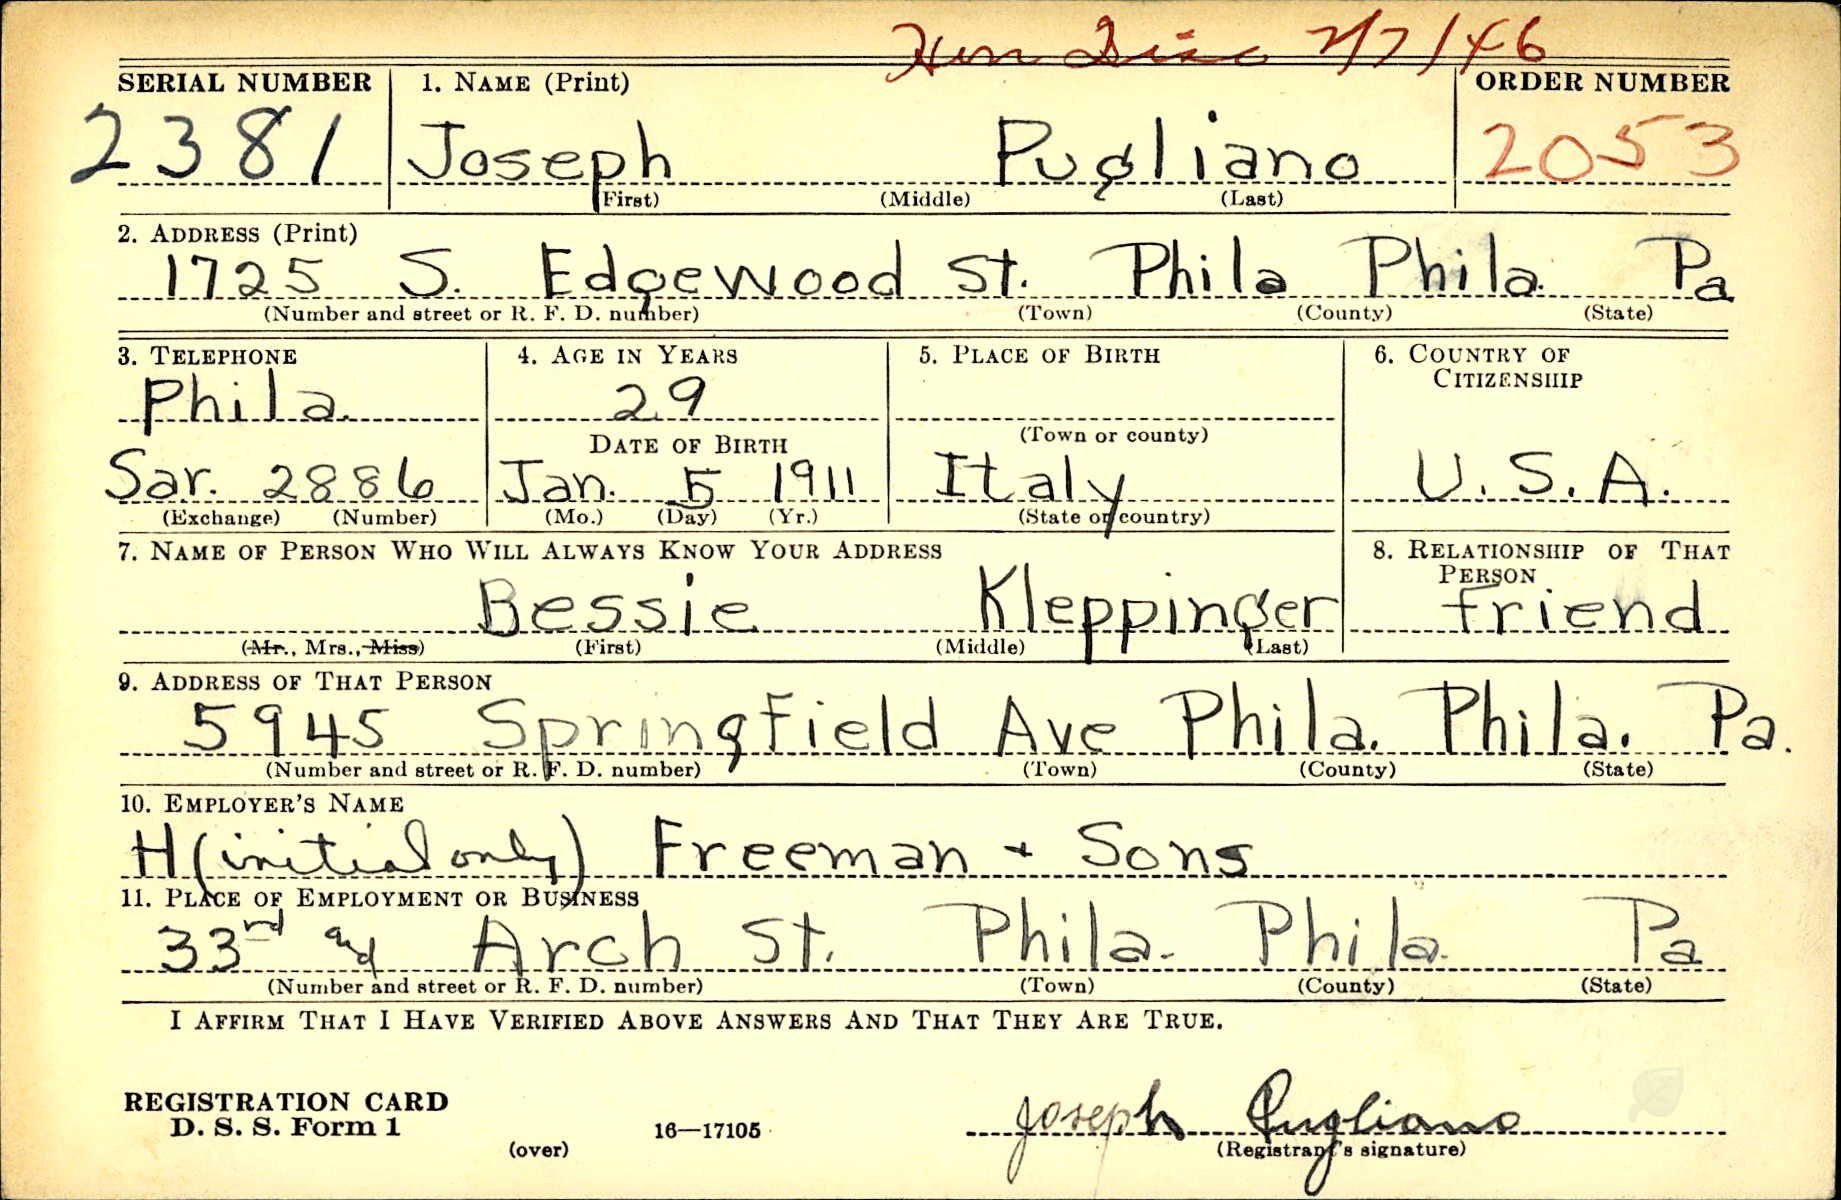 Hon Disc 2/7/46
SERIAL NUMBER 1. NAME (Print) ORDER NUMBER
2381 Joseph Pugliano 2053
(First) (Middle) (Last)
2. ADDRESS (Print)
1725 S. Edgewood St. Phila Phila. Pa
(Number and street or R. F. D. number) (Town) (County) (State)
3. TELEPHONE 4. AGE IN YEARS 5. PLACE OF BIRTH 6. COUNTRY OF CITIZENSHIP
Phila. 29
DATE OF BIRTH (Town or county)
Sar. 2886 Jan. 5 1911 Italy U. S. A.
(Exchange) (Number) (Mo.) (Day) (Yr.) (State or country)
7. NAME OF PERSON WHO WILL ALWAYS KNOW YOUR ADDRESS 8. RELATIONSHIP OF THAT PERSON
Bessie Kleppinger friend
(Mr., Mrs., Miss) (First) (Middle) (Last)
9. ADDRESS OF THAT PERSON
5945 Springfield Ave Phila. Phila. Pa.
(Number and street or R. F. D. number) (Town) (County) (State)
10. EMPLOYER'S NAME
H (initial only) Freeman + Sons
11. PLACE OF EMPLOYMENT OR BUSINESS
33rd and Arch St. Phila. Phila. Pa
(Number and street or R. F. D. number) (Town) (County) (State)
I AFFIRM THAT I HAVE VERIFIED ABOVE ANSWERS AND THAT THEY ARE TRUE.
REGISTRATION CARD
D. S. S. Form 1
(over) 16—17105
Joseph Pugliano
(Registrant's signature)